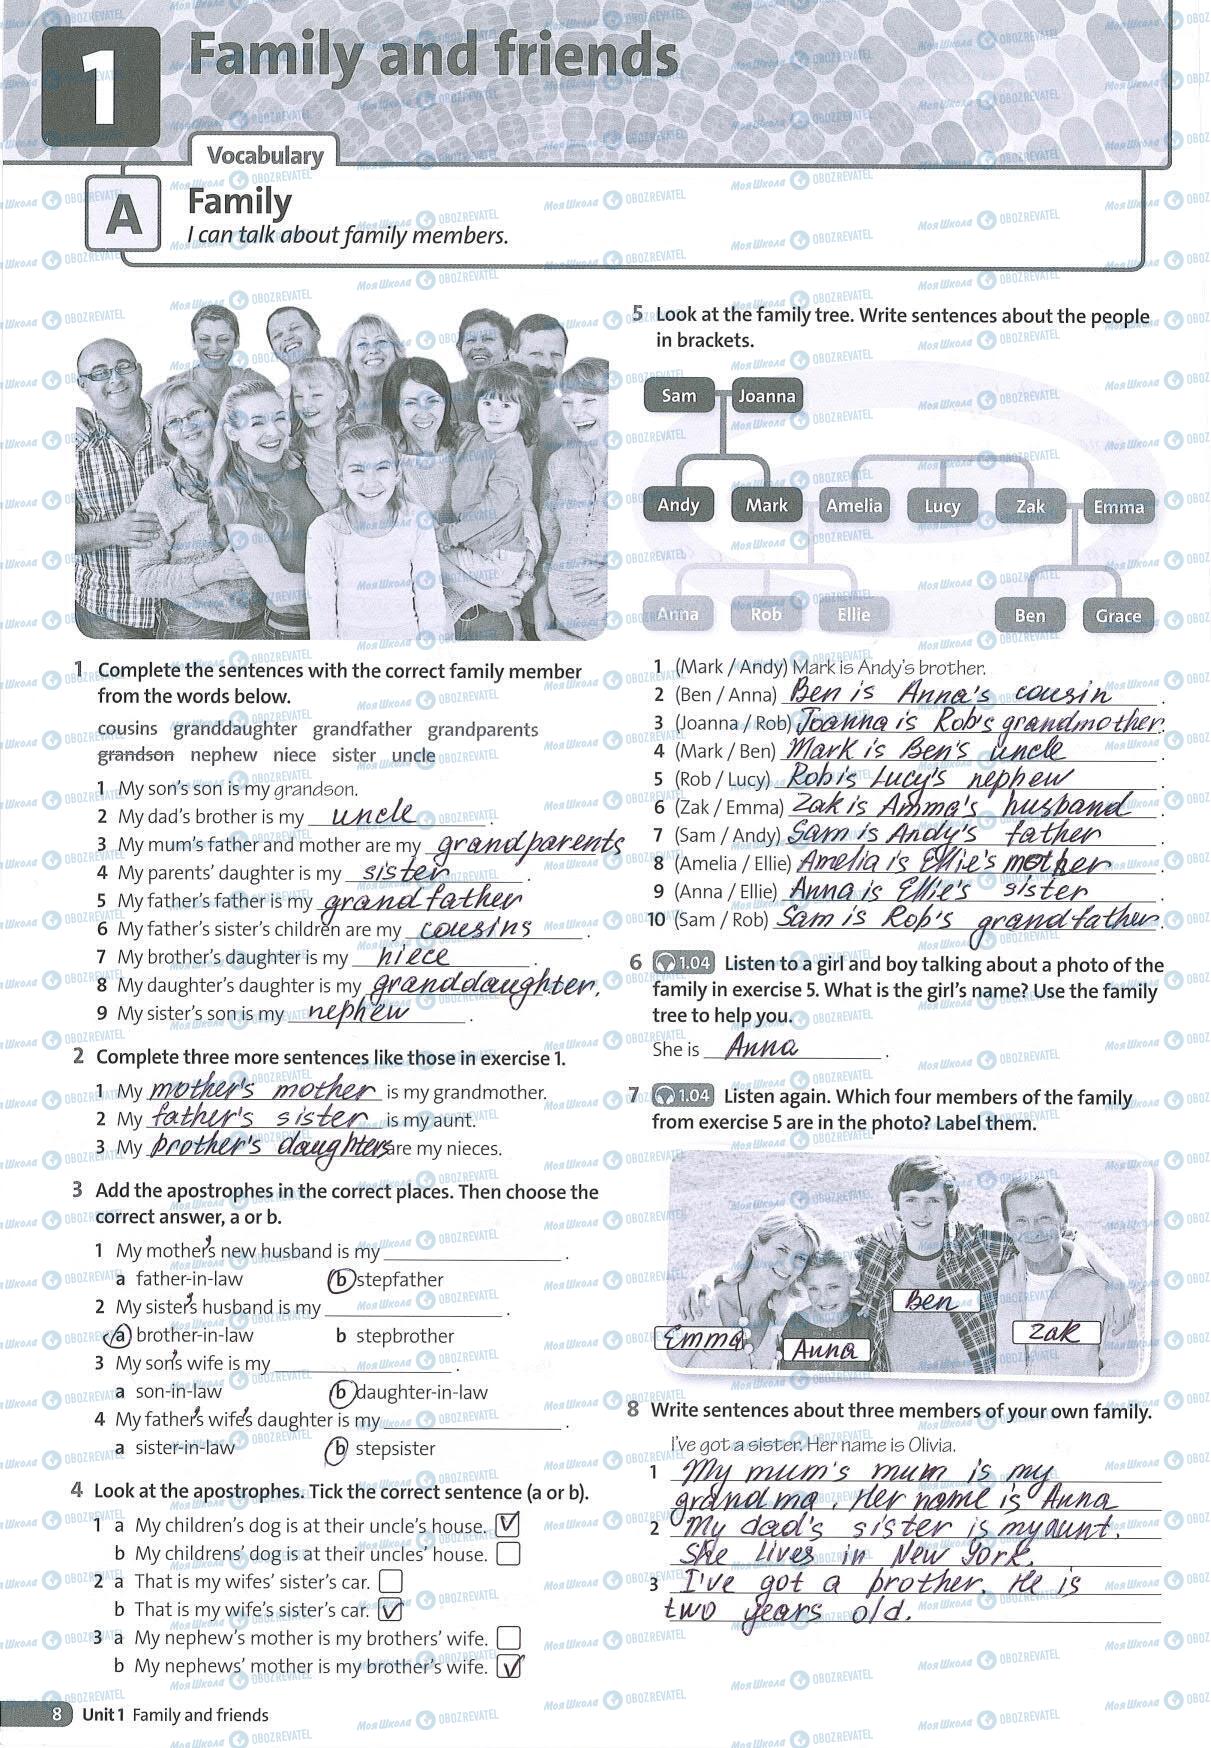 1
Family and friends
Vocabulary
A
Family
I can talk about family members.
1 Complete the sentences with the correct family member
from the words below.
cousins granddaughter grandfather grandparents
grandson nephew niece sister uncle
1 My son's son is my grandson.
2 My dad's brother is my uncle .
3 My mum's father and mother are my grandparents
4 My parents' daughter is my sister .
5 My father's father is my grandfather
6 My father's sister's children are my cousins .
7 My brother's daughter is my niece .
8 My daughter's daughter is my granddaughter.
9 My sister's son is my nephew .
2 Complete three more sentences like those in exercise 1.
1 My mother's mother is my grandmother.
2 My father's sister is my aunt.
3 My brother's daughters are my nieces.
3 Add the apostrophes in the correct places. Then choose the
correct answer, a or b.
1 My mother's new husband is my .
a father-in-law b stepfather
2 My sister's husband is my .
a brother-in-law b stepbrother
3 My son's wife is my .
a son-in-law b daughter-in-law
4 My father's wife's daughter is my .
a sister-in-law b stepsister
4 Look at the apostrophes. Tick the correct sentence (a or b).
1 a My children's dog is at their uncle's house. V
b My childrens' dog is at their uncles' house.
2 a That is my wifes' sister's car.
b That is my wife's sister's car. V
3 a My nephew's mother is my brothers' wife.
b My nephews' mother is my brother's wife. V
5 Look at the family tree. Write sentences about the people
in brackets.
Sam Joanna
Andy Mark Amelia Lucy Zak Emma
Anna Rob Ellie Ben Grace
1 (Mark / Andy) Mark is Andy's brother.
2 (Ben / Anna) Ben is Anna's cousin .
3 (Joanna / Rob) Joanna is Rob's grandmother.
4 (Mark / Ben) Mark is Ben's uncle .
5 (Rob / Lucy) Rob is Lucy's nephew .
6 (Zak / Emma) Zak is Amma's husband .
7 (Sam / Andy) Sam is Andy's father .
8 (Amelia / Ellie) Amelia is Ellie's mother .
9 (Anna / Ellie) Anna is Ellie's sister .
10 (Sam / Rob) Sam is Rob's grandfather .
6 1.04 Listen to a girl and boy talking about a photo of the
family in exercise 5. What is the girl's name? Use the family
tree to help you.
She is Anna .
7 1.04 Listen again. Which four members of the family
from exercise 5 are in the photo? Label them.
Emma Anna Ben Zak
8 Write sentences about three members of your own family.
I've got a sister. Her name is Olivia.
1 My mum's mum is my
grandma. Her name is Anna
2 My dad's sister is my aunt.
She lives in New York.
3 I've got a brother. He is
two years old.
8 Unit 1 Family and friends
Моя Школа OBOZREVATEL